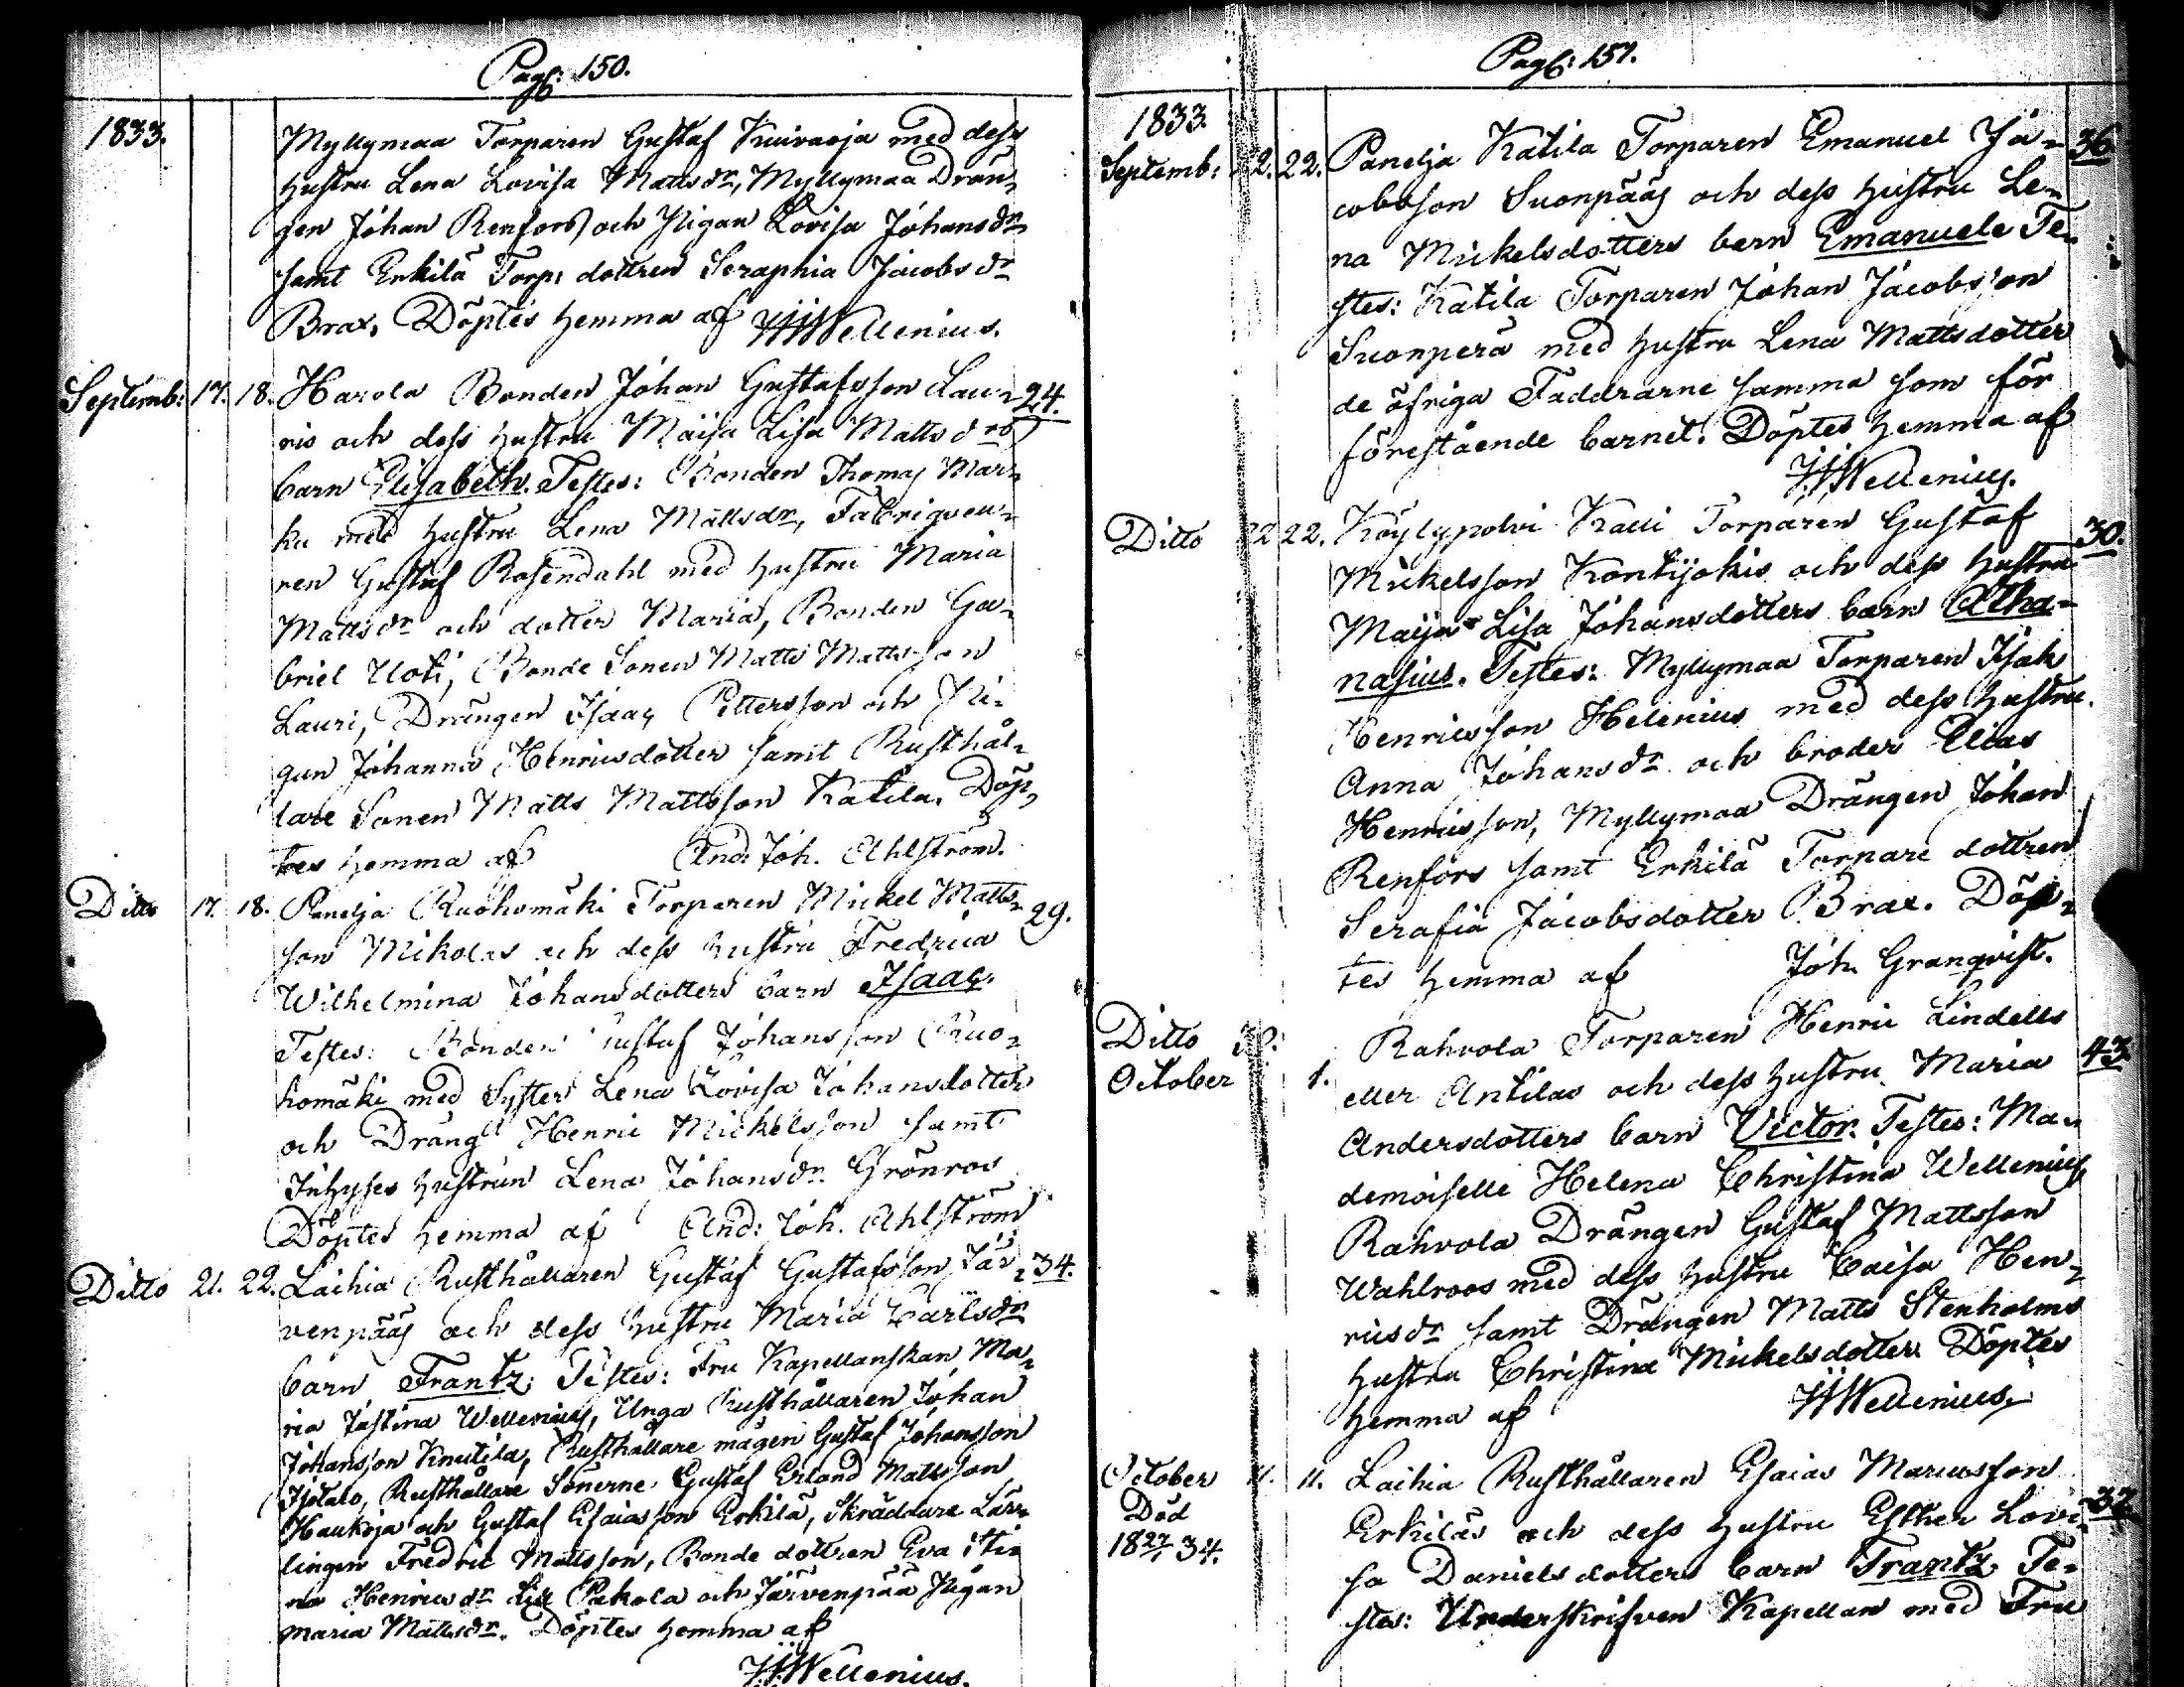 Pag: 150.
1833.
Myllymaa Torparen Gustaf Kuivaoja med dess
hustru Lena Lovisa Mattsdr, Myllymaa Drän-
gen Johan Renfors och Pigan Lovisa Johansdr
samt Erkilä Torp: dottren Seraphia Jacobsdr
Brax. Döptes hemma af JWellenius.
Septemb: 17. 18. Harola Bonden Johan Gustafsson Lau- 24.
ris och dess hustru Maija Lisa Mattsdrs
barn Elisabeth. Testes: Bonden Thomas Mar-
ku med hustru Lena Mattsdr, Fabriqveu-
ren Gustaf Rosendahl med hustru Maria
Mattsdr och dotter Maria, Bonden Ga-
briel Uoti, Bonde Sonen Matts Mattsson
Lauri, Drängen Isaac Pettersson och Pi-
gan Johanna Henricsdotter samt Rusthål-
lare Sonen Matts Mattsson Katila. Döp-
tes hemma af And: Joh. Ahlström.
Ditto 17. 18. Panelja Ruohomäki Torparen Mickel Matts- 29.
son Mikolas och dess hustru Fredrica
Wilhelmina Johansdotters barn Isaac.
Testes: Bonden Gustaf Johansson Ruo-
homäki med Syster Lena Lovisa Johansdotter
och Dräng Henric Mickelsson samt
Inhyses hustrun Lena Johansdr Grönroos
Döptes hemma af And: Joh. Ahlström
Ditto 21. 22. Laihia Rusthållaren Gustaf Gustafsson Jär- 34.
venpääs och dess hustru Maria Carlsdr
barn Frantz. Testes: Fru Kapellanskan Ma-
ria Justina Wellenius, Unga Rusthållaren Johan
Johansson Knutila, Rusthållare mågen Gustaf Johansson
Isotalo, Rusthållare Sönerne Gustaf Erland Mattsson
Haukoja och Gustaf Esaiasson Erkilä, Skräddare Lär-
lingen Fredric Mattsson, Bonde dottren Eva Sti-
na Henricsdr Pakola och Järvenpää Pigan
Maria Mattsdr. Döptes hemma af
JWellenius.
Pag: 151.
1833.
Septemb: 22. 22. Panelja Katila Torparen Emanuel Ja- 36.
cobsson Suonpääs och dess hustru Le-
na Mickelsdotters barn Emanuel. Te-
stes: Katila Torparen Johan Jacobsson
Suonperä med hustru Lena Mattsdotter
de öfriga Faddrarne samma som för
förestående barnet. Döptes hemma af
JWellenius.
Ditto 22 22. Köylypolvi Kalli Torparen Gustaf 30.
Mickelsson Kontijokis och dess hustru
Maija Lisa Johansdotters barn Atha-
nasius. Testes: Myllymaa Torparen Isak
Henricsson Helenius med dess hustru
Anna Johansdr och broder Elias
Henricsson, Myllymaa Drängen Johan
Renfors samt Erkilä Torpare dottren
Serafia Jacobsdotter Brax. Döp-
tes hemma af Joh. Granqvist.
Ditto 30. Rahvola Torparen Henric Lindells
October 1. eller Antilas och dess hustru Maria 43.
Andersdotters barn Victor. Testes: Ma-
demoiselle Helena Christina Wellenius
Rahvola Drängen Gustaf Mattsson
Wahlroos med dess hustru Caisa Hen-
ricsdr samt Drängen Matts Stenholms
hustru Christina Mickelsdotter. Döptes
hemma af JWellenius.
October 11. 11. Laihia Rusthållaren Esaias Marcusson
Död Erkiläs och dess hustru Esther Lovi- 32.
18 27/1 34. sa Danielsdotters barn Frantz. Te-
stes: Underskrifven Kapellan med Fru